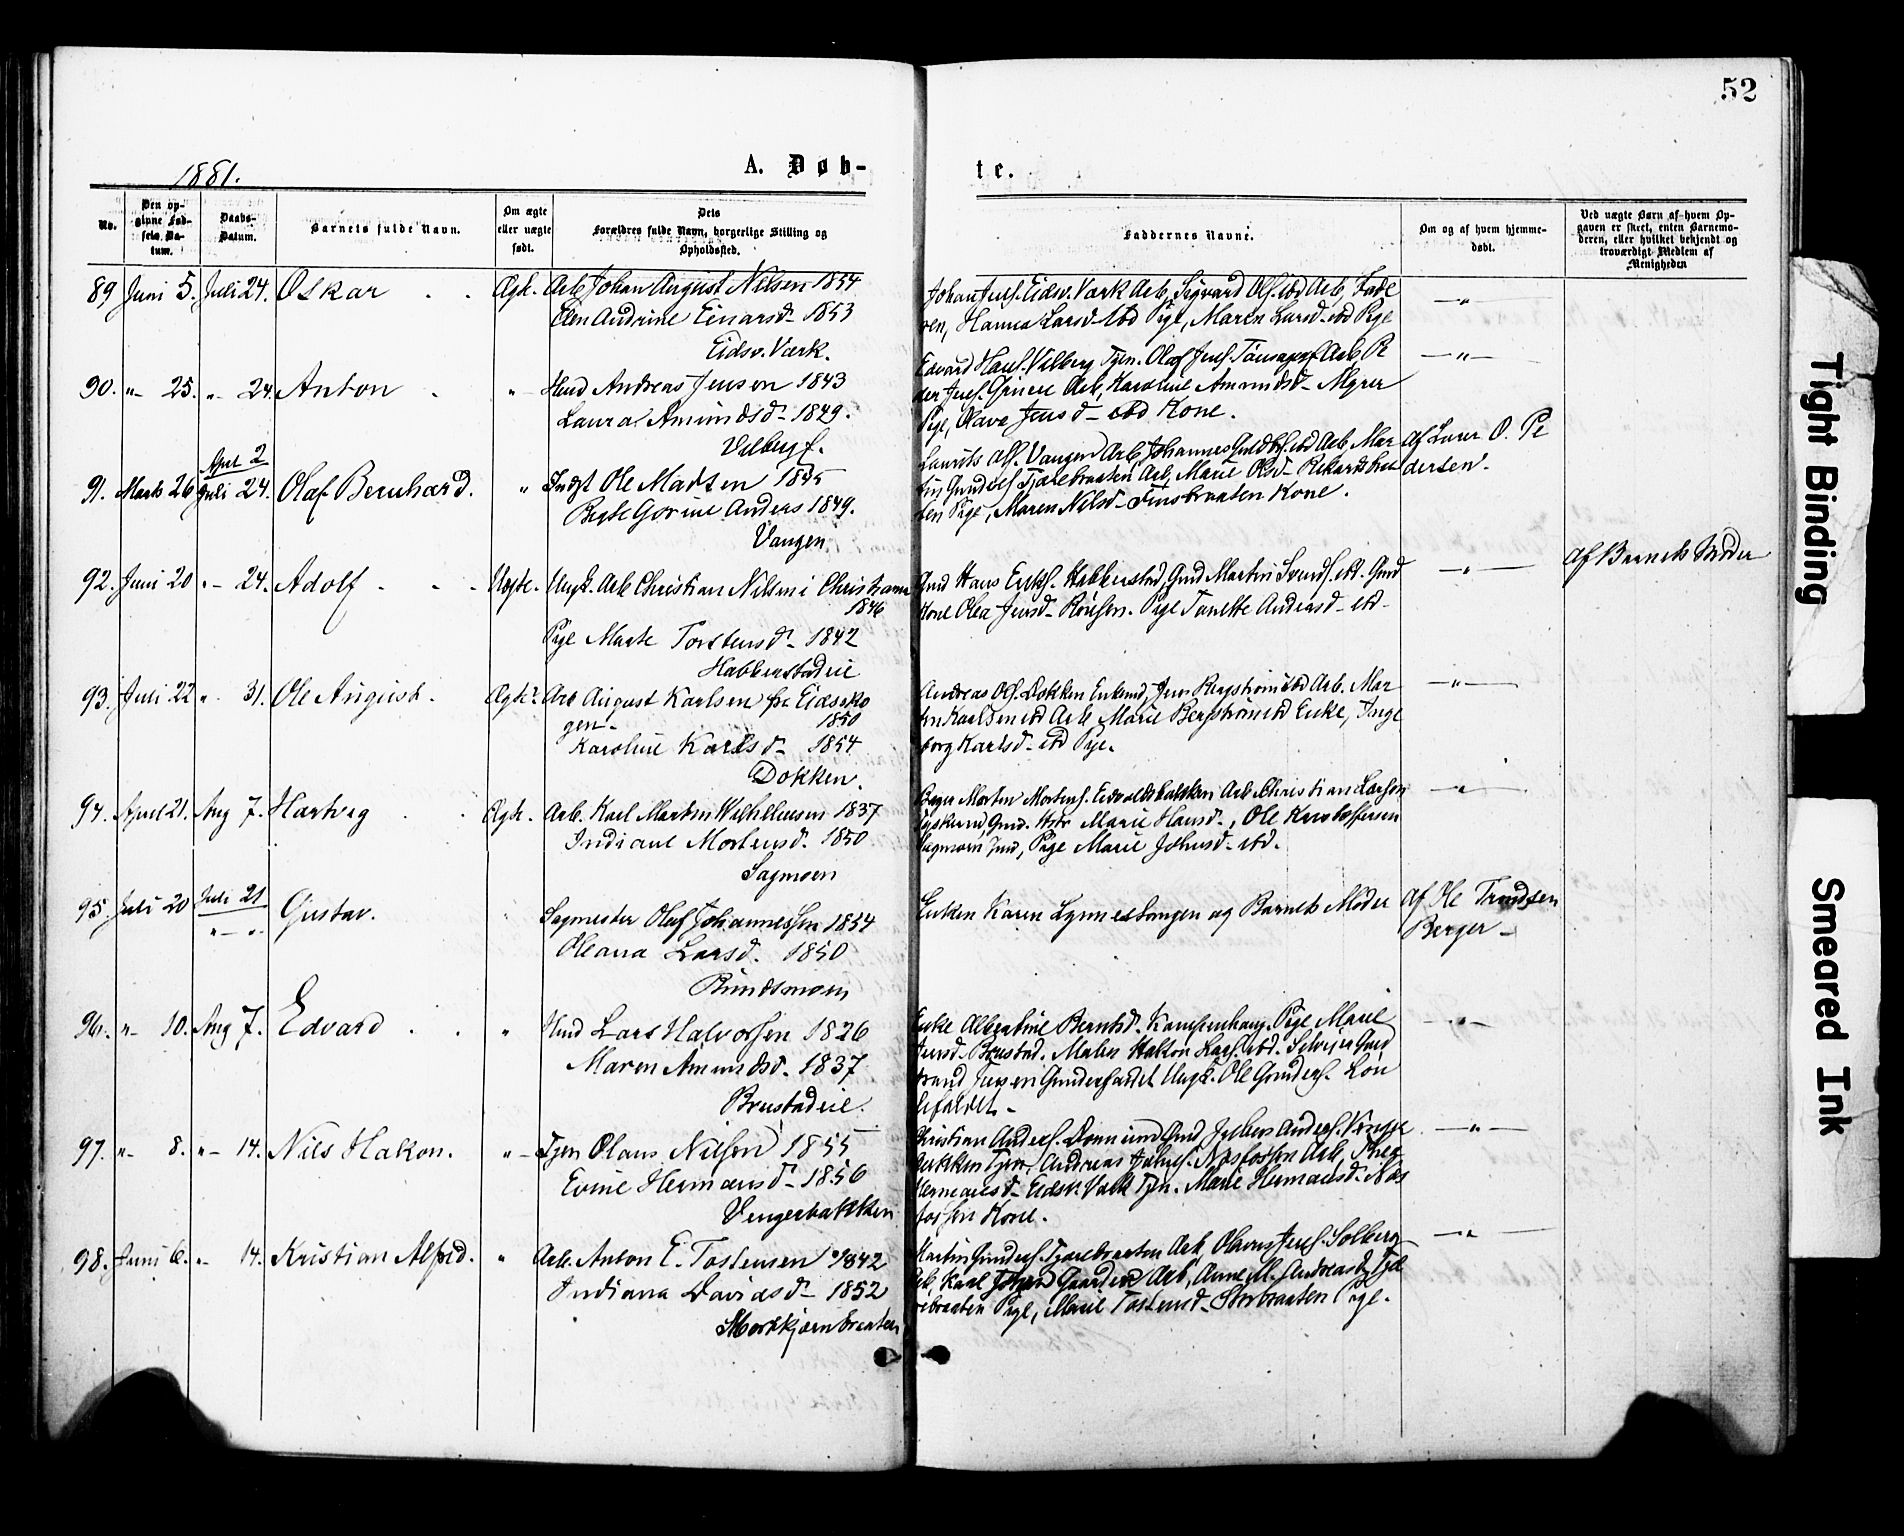 52
1881.
A. Døb-
te.
No.
Den op-
givne Fød-
sels Da-
tum.
Daabs-
Datum.
Barnets fulde Navn.
Om ægte
eller uægte
født.
Dets
Forældres fulde Navn, borgerlige Stilling og
Opholdssted.
Faddernes Navne.
Om og af hvem hjemme-
døbt.
Ved uægte Børn af hvem Op-
gaven er skeet, enten Barnemo-
deren, eller hvilket bekjendt og
troværdigt Medlem af
Menigheden
89 Juni 5. Juli 24. Oskar Ægte. Arb Johan August Nilsen 1854
Elen Andrine Einarsd- 1853
Eidsv. Værk.
Johan Eidsv. Værk Arb, Sigvard Ols. ibd Arb,
ren, Hanna Larsd- ibd Pige, Maren Larsd- ibd Pige
90. "- 25. "- 24. Anton "- Husd Andreas Jensen 1843
Laura Amundsd- 1849.
Vilberg
Edvard Hans. Vilberg Tjen. Olaf Jens. Arb Pe
der Jens. Arb, Karoline Amundsd-
Pige, Olava Jensd- ibd Kone.
91. Marts 26 April 2
Juli 24. Olaf Bernhard. " Indst Ole Madsen 1845
Gorine Anders 1849.
Vangen
Laurits Vangen Arb Johannes ibd Arb, Mar
tin Gunders Tjærebraaten Arb, Marie Olsd-
ten Pige, Maren Nilsd- Finsbraaten Kone.
af Lars O. Pe
dersen.
92. Juni 20 "- 24. Adolf Uægte. Ungk. Arb Christian Nilsen i Christiania
1846
Pige Marte Torstensd- 1842
Habberstadeie
Gmd Hans Eriks. Habberstad, Gmd Martin Svends. ibd. Gmd
Kone Olea Jensd- Pige Tanette Andersd- ibd-
-"-
af Barnets Moder
93. Juli 22 "- 31. Ole August. Ægte. Arb August Karlsen fra Eidssko
gen- 1850
Karoline Karlsd- 1854
Dokken.
Andreas Ols. Dokken Enkemd, Jens Bergstrøm ibd Arb. Mar
tin Karlsen ibd Arb. Marie Bergstrøm ibd Enke, Inge
borg Karlsd- ibd Pige.
-"-
94. April 21. Aug 7. Hartvig Ægte. Arb. Karl Martin Wilhelmsen 1837
Indiane Mortensd. 1850
Sagmoen
Morten Mortens. Eidsvoldsbakken Arb Christian Larsen
Gmd. Marie Hansd-, Ole Kristoffersen
Sagmoen Pige Marie Johnsd- ibd.
-"-
95. Juli 20 Juli 21
"-" Gustav. Sagmester Olaf Johannessen 1854
Oleana Larsd. 1850
Rundsmoen
Enken Karen og Barnets Moder
af Ole Trondsen
Berger-
96. "- 10. Aug 7. Edvard " Husd Lars Halvorsen 1826
Maren Amundsd. 1837
Brustadeie.
Enke Albertine Berntsd. Pige Marie
Jensd- Brustad. Maler Hakon Lars. ibd. Gmd
Jensen Ungk. Ole Gunders. Løn
lifaldet-
-"-
97. "- 8. "- 14. Nils Hakon. "- Tjen Olaus Nilsen 1855
Evine Hermansd- 1856
Vengerbakken
Christian Anders. Gmd, Julius Anders.
bakken Tjen, Andreas Johns. Næsfossen Arb,
Hermansd- Eidsv. Værk Tjen. Marie Hermansd- Næs
fossen Kone.
-"-
98. Juni 6. "- 14. Kristian Alfred. " Arb. Anton E. Tostensen 1842
Indiana Davidsd- 1852
Mørkkjærnbraaten
Martin Gunders. Tjærebraaten Arb, Olavus Jens. Solberg
Arb, Karl Johan Arb, Anne M. Andreasd. Tjæ
rebraaten Pige, Marie Tostensd- Storbraaten Pige.
-"-
Tight Binding
Smeared Ink